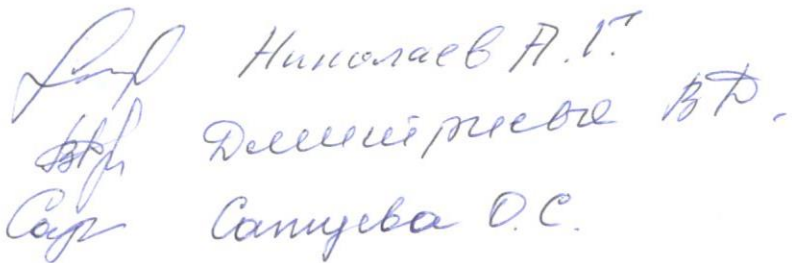 Николаев А.Г.
Дмитриева В.Д.
Сатцева О.С.